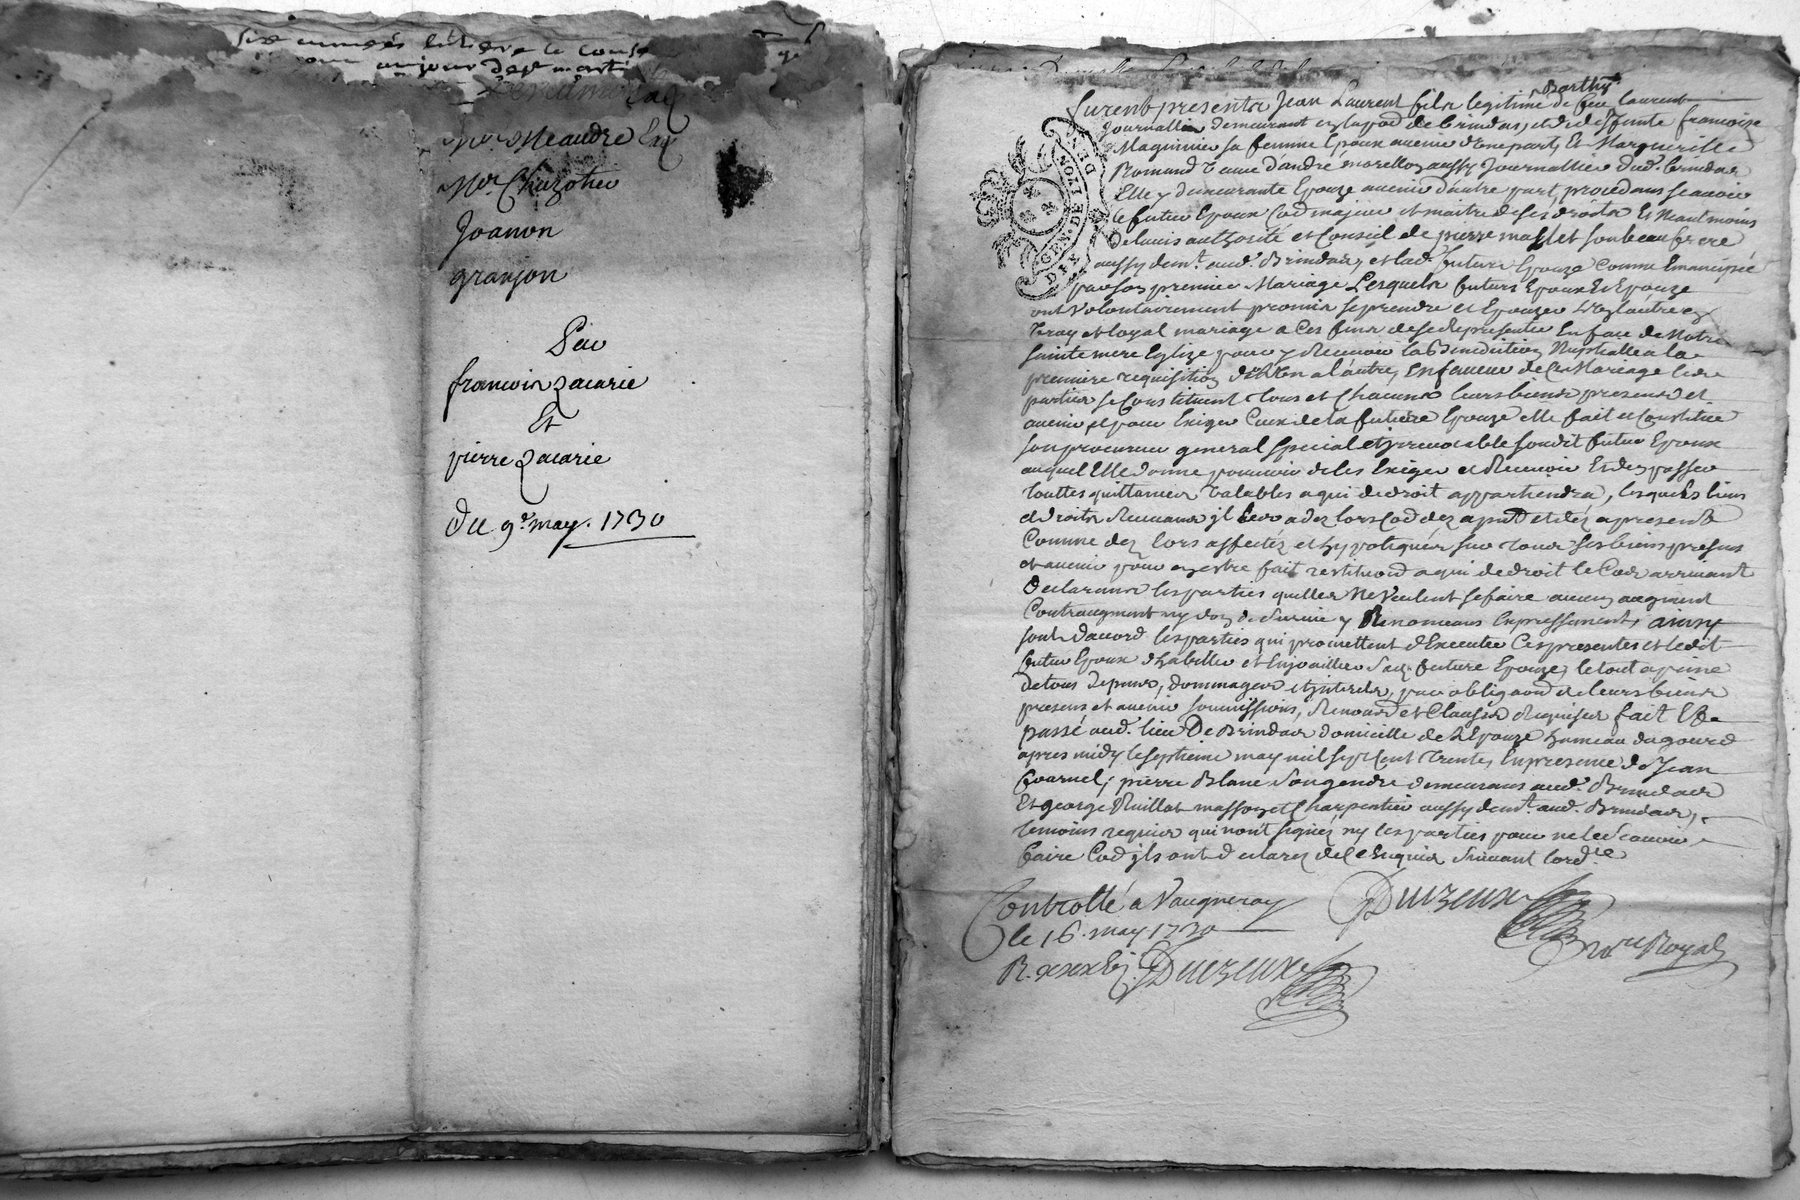 six années
un jour
Me. Meaudre
Me. Chazotier
Joanon
granjon
Par
francois zacarie
Et
pierre zacarie
du 9e. may. 1730
GEN. DE LYON
Barthy
Furent presents Jean Laurent fils legitime de feu laurent
Journallier demeurant en la par de brindas, et de deffunte francoise
Magninin sa femme Epoux avenir d'une part, Et Margueritte
Romand veuve d'andré morellon aussy Journallier dud. brindas
Elle y demeurante Epouze avenir d'autre part, procedans scavoir
le futur Epoux Comme majeur et maitre de ses droits Et Neantmoins
de lavis authorité et Conseil de pierre masset son beau frere
aussy demt. aud. Brindas, et lad. future Epouze Comme Emancipée
par son premier Mariage Lesquels futurs Epoux Et Epouze
ont Volontairement promis se prendre et Epouzer L'un lautre en
vray et loyal mariage a Ces fins de se representer En face de Notre
sainte mere Eglize pour y Recevoir la Benediction Nuptialle a la
premiere requisition de l'un a lautre, En faveur de Ce Mariage lesd.
parties se Constituent tous et Chacuns leurs biens presens et
avenir, et pour Exiger Ceux de la future Epouze elle fait et Constitue
son procureur general special et irrevocable sondit futur Epoux
auquel Elle donne pouvoir de les Exiger et Recevoir Et den passer
touttes quittances valables a qui de droit appartiendra, lesquels biens
et droits Recevans il
Comme dez lors affectez et hypotequés sur tous ses biens presens
et avenir pour en estre fait restitution a qui de droit le Cas arrivant
declarans les parties quelles Ne Veulent se faire aucun augment
Contraugment ny don de survie y Renonceans Expressement, ainsy
sont dacord les parties qui promettent dExecuter Ces presentes et ledit
futur Epoux dhabiller et Enjoailler sad. future Epouze, le tout a peine
de tous depens, dommages et interets, par obligaon de leurs biens
presens et avenir soumissions, Renonons et Clauses Requises fait Et
passé aud. lieu De Brindas domicille de lEpouze hameau du gourd
apres midy le septieme may mil sept Cent trente, En presence de Jean
fournel, pierre Blanc son gendre demeurans aud. Brindas
Et george Ruillat masson et Charpentier aussy demt. aud. Brindas,
temoins requis qui n'ont signez ny les parties pour ne le scavoir
faire Comme ils ont declarez de Ce Enquis suivant lordce
Controllé a Vaugneray
le 16. may 1730
Duizeux
Nore Royal
R.
Duizeux